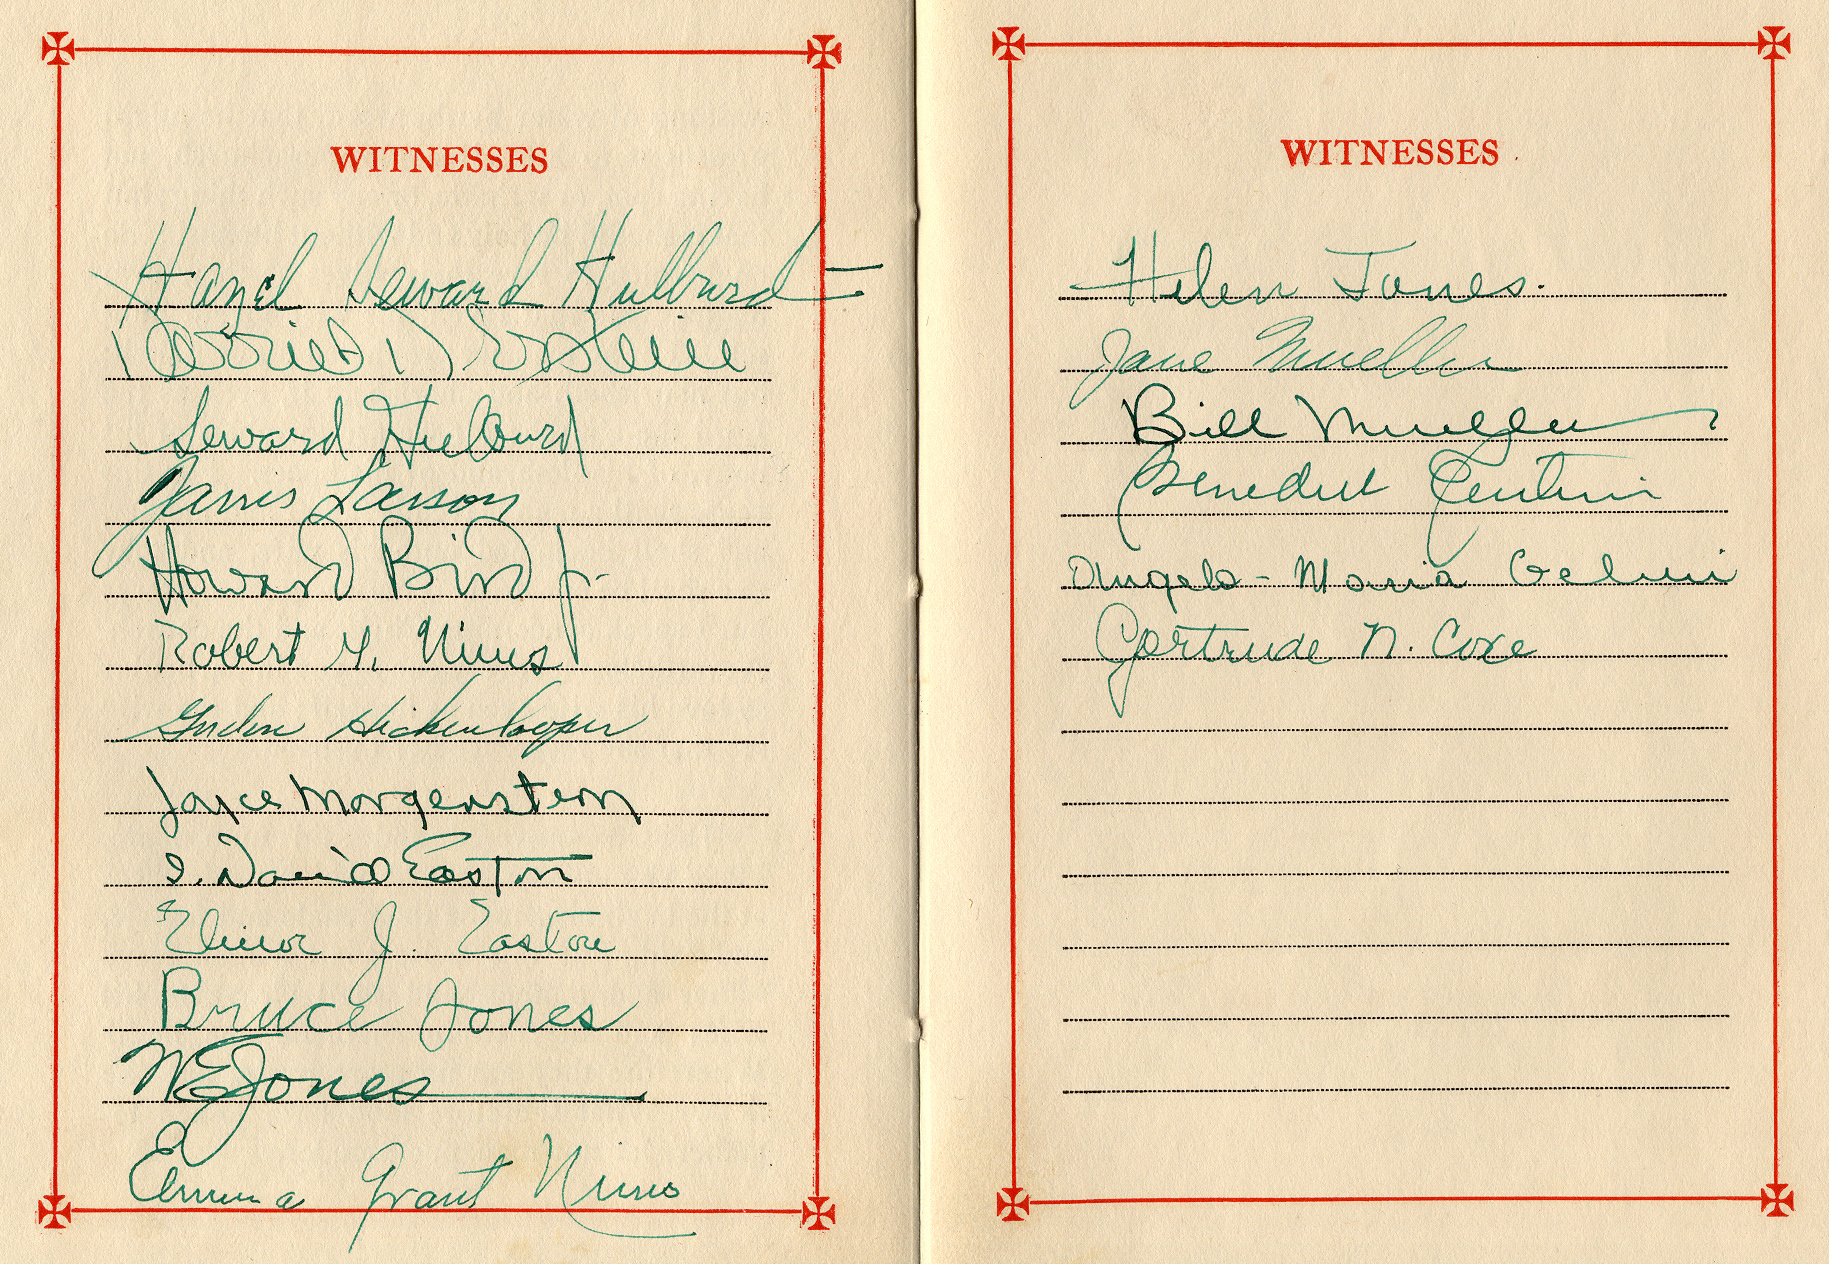 WITNESSES
Hazel Seward Hulburd
Harriet D Erstein
Seward Hulburd
Janis Larson
Howard Bird Jr.
Robert M. Nims
Gordon Hickenlooper
Joyce Morgenstern
I. David Easton
Elinor J. Easton
Bruce Jones
WE Jones
Emma Grant Nims
WITNESSES
Helen Jones.
Jane Mueller
Bill Mueller
Benedict
Maria
Gertrude N. Coxe